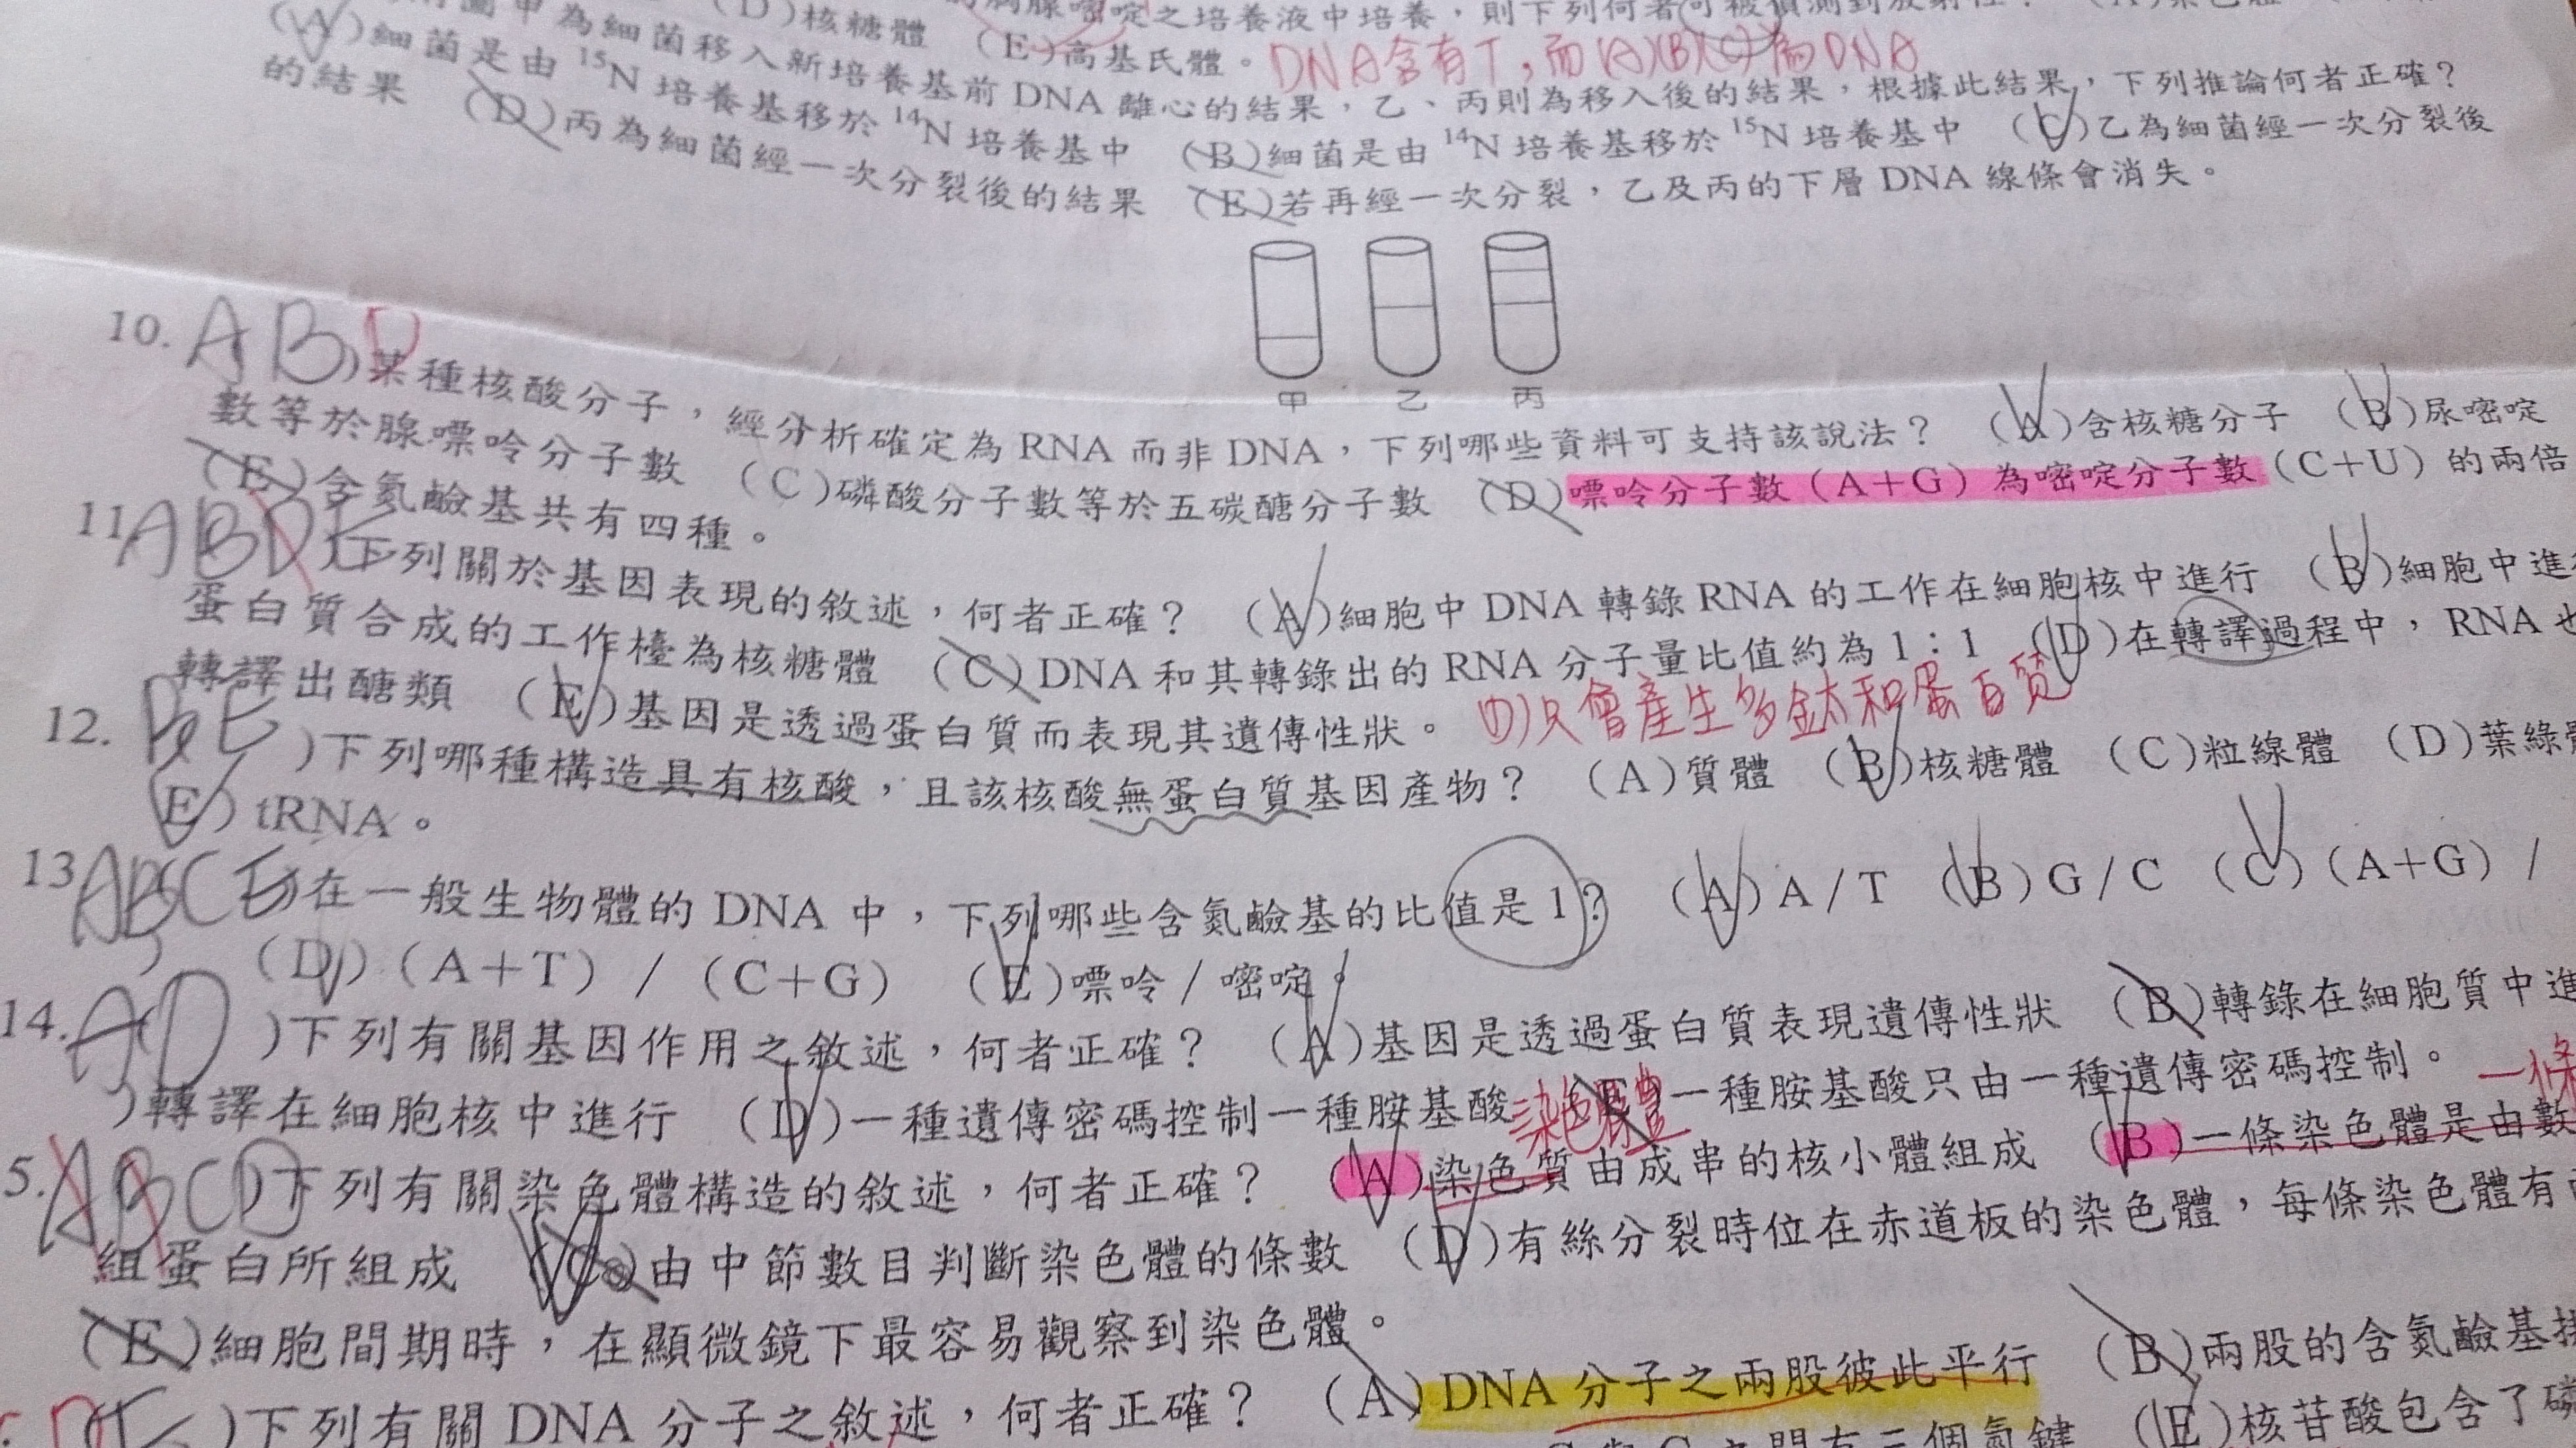 胸腺嘧啶之培養液中培養，則下列何者可被偵測到放射性？
(D)核糖體 (E)高基氏體。 DNA含有T，而(A)(B)(C)為DNA
圖甲為細菌移入新培養基前 DNA 離心的結果，乙、丙則為移入後的結果，根據此結果，下列推論何者正確？
(A)細菌是由 ¹⁵N 培養基移於 ¹⁴N 培養基中 (B)細菌是由 ¹⁴N 培養基移於 ¹⁵N 培養基中 (C)乙為細菌經一次分裂後
的結果 (D)丙為細菌經一次分裂後的結果 (E)若再經一次分裂，乙及丙的下層 DNA 線條會消失。
甲 乙 丙
10. ABD )某種核酸分子，經分析確定為 RNA 而非 DNA，下列哪些資料可支持該說法？ (A)含核糖分子 (B)尿嘧啶
數等於腺嘌呤分子數 (C)磷酸分子數等於五碳醣分子數 (D)嘌呤分子數（A＋G）為嘧啶分子數（C＋U）的兩倍
(E)含氮鹼基共有四種。
11 ABDE )下列關於基因表現的敘述，何者正確？ (A)細胞中 DNA 轉錄 RNA 的工作在細胞核中進行 (B)細胞中進
蛋白質合成的工作檯為核糖體 (C)DNA 和其轉錄出的 RNA 分子量比值約為 1：1 (D)在轉譯過程中，RNA
轉譯出醣類 (E)基因是透過蛋白質而表現其遺傳性狀。 (D)只會產生多鈦和蛋白質
12. BE )下列哪種構造具有核酸，且該核酸無蛋白質基因產物？ (A)質體 (B)核糖體 (C)粒線體 (D)葉綠
(E) tRNA。
13 ABCE )在一般生物體的 DNA 中，下列哪些含氮鹼基的比值是 1？ (A)A／T (B)G／C (C)（A＋G）／
) (D)（A＋T）／（C＋G） (E)嘌呤／嘧啶。
14. AD )下列有關基因作用之敘述，何者正確？ (A)基因是透過蛋白質表現遺傳性狀 (B)轉錄在細胞質中進
)轉譯在細胞核中進行 (D)一種遺傳密碼控制一種胺基酸 (E)一種胺基酸只由一種遺傳密碼控制。 一條
染色體
5. ABCD )下列有關染色體構造的敘述，何者正確？ (A)染色質由成串的核小體組成 (B)一條染色體是由數
組蛋白所組成 (C)由中節數目判斷染色體的條數 (D)有絲分裂時位在赤道板的染色體，每條染色體有
(E)細胞間期時，在顯微鏡下最容易觀察到染色體。
)下列有關 DNA 分子之敘述，何者正確？ (A)DNA 分子之兩股彼此平行 (B)兩股的含氮鹼基
之間有三個氫鍵 (E)核苷酸包含了磷